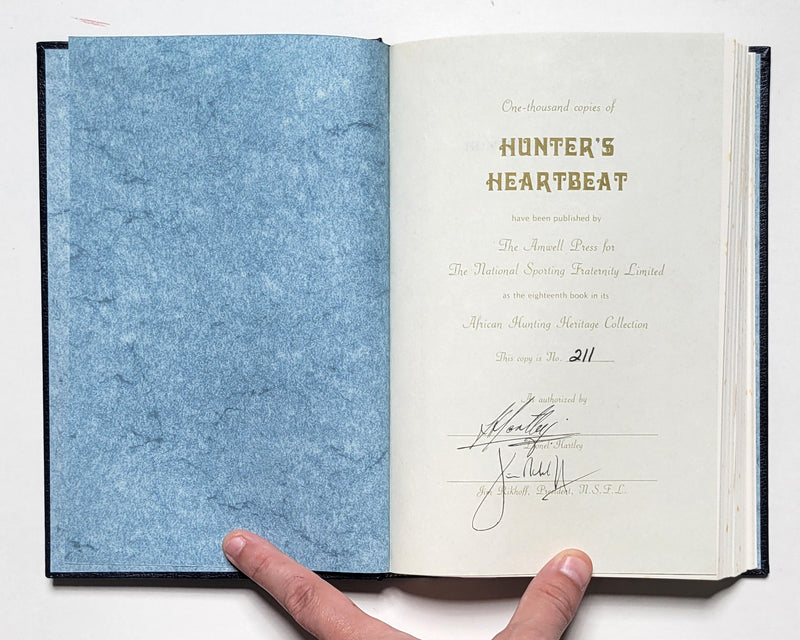 One-thousand copies of
HUNTER'S
HEARTBEAT
have been published by
The Amwell Press for
The National Sporting Fraternity Limited
as the eighteenth book in its
African Hunting Heritage Collection
This copy is No. 211
As authorized by
Lionel Hartley
Jim Rikhoff, President, N.S.F.L.